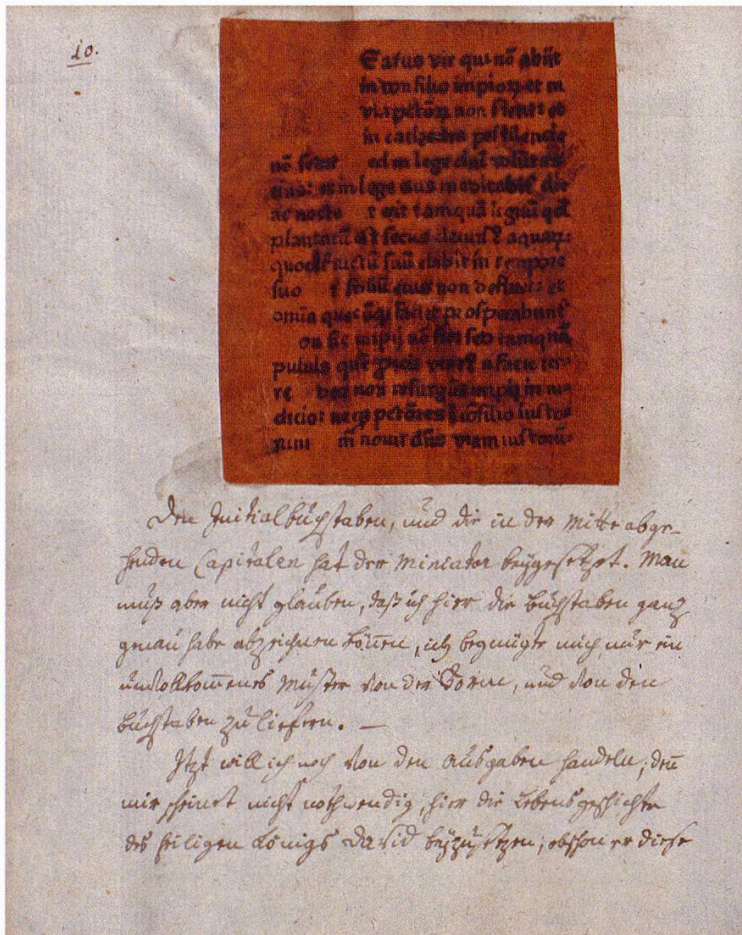 10.
Eatus vir qui nō abiit
in consilio impioꝝ et in
via pctōꝝ non stetit et
in cathedra pestilencie
nō sedit ed in lege dn̄i volūtas
eius: et in lege eius meditabit᷑ die
ac nocte t erit tamquā lignū qd̄
plantatū est secus decurs⁹ aquaꝝ:
quod fructū suū dabit in tempore
suo t foliū eius non defluet: et
omīa quecūqꝫ faciet prosperabunt᷑
on sic impij nō sic: sed tamquā
puluis quē proicit vent⁹ a facie ter-
re deo non resurgūt impij in iu-
dicio: neqꝫ pctōres ī cōsilio iusto-
rum m̄ nouit dn̄s viam iustorū:
Den Initialbuchstaben, und die in der Mitte abge-
henden Capitalen hat der Miniator beygesetzet. Man
muß aber nicht glauben, daß ich hier die Buchstaben ganz
genau habe abzeichnen können, ich begnügte mich nur ein
unvollkommenes Muster von der Form, und von den
Buchstaben zu liefern. —
Itzt will ich noch von den Ausgaben handeln; deñ
mir scheinet nicht nothwendig, hier die Lebensgeschichte
des heiligen Königs David beyzusetzen; obschon er diese